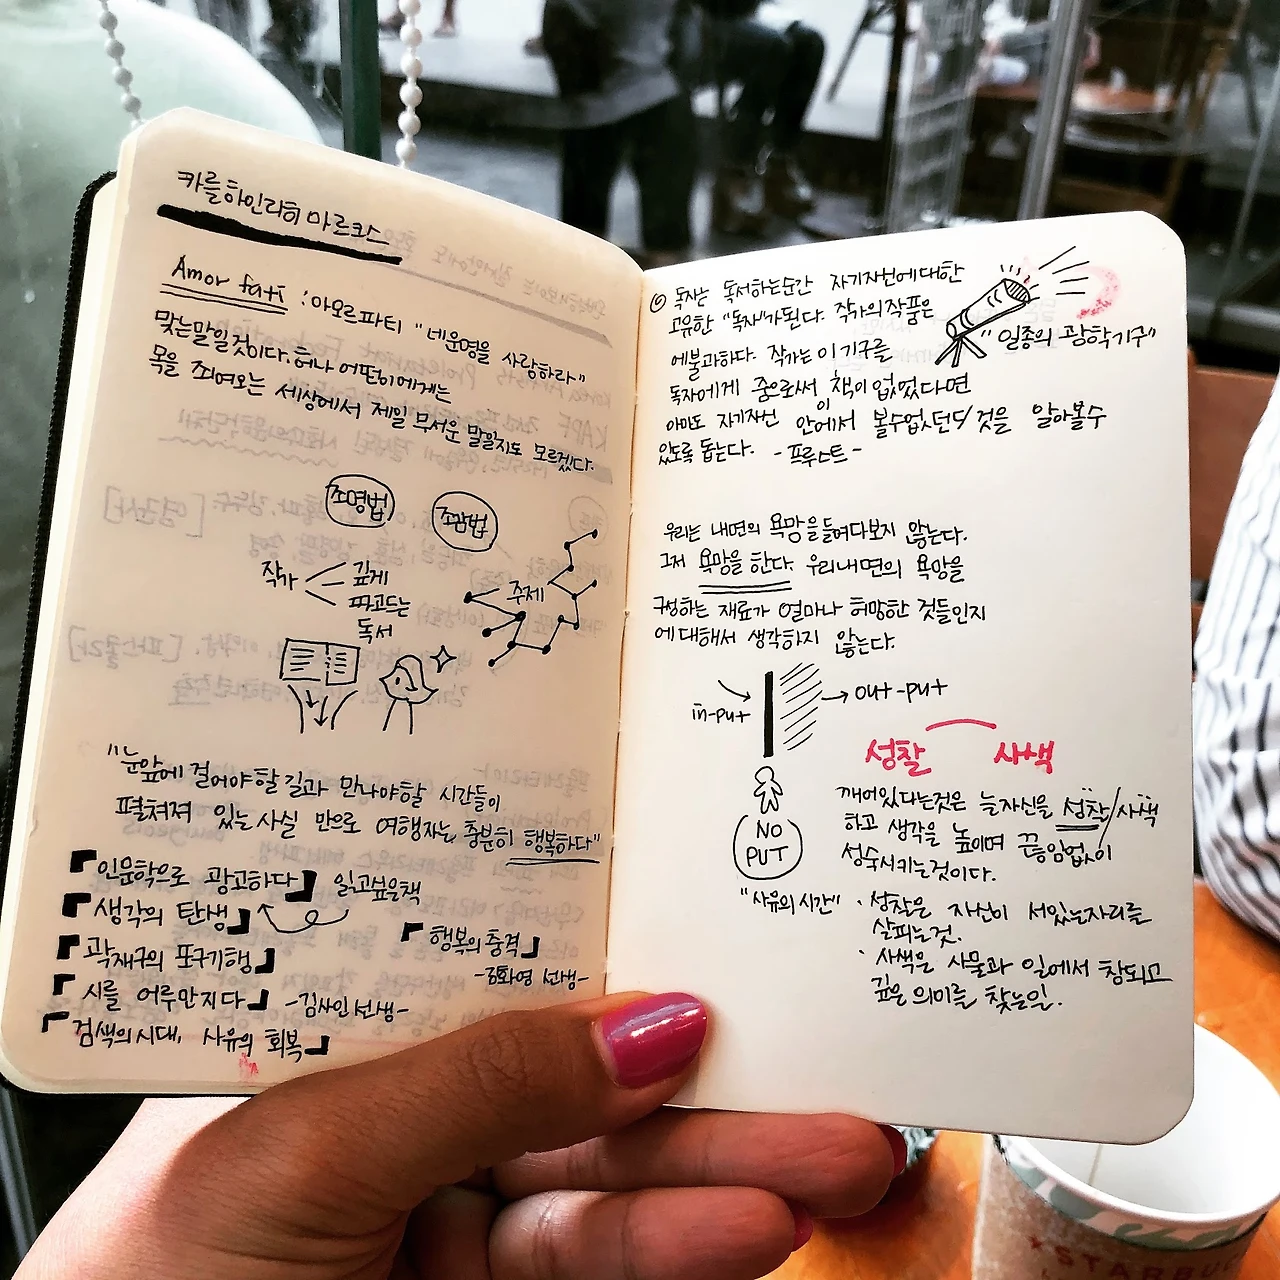 카를하인리히 마르크스
Amor fati : 아모르파티 "네운명을 사랑하라"
맞는말일 것이다. 허나 어떤이에게는
목을 죄여오는 세상에서 제일 무서운 말일지도 모르겠다.
조명법
조감법
작가
깊게
파고드는
독서
주제
"눈앞에 걸어야할 길과 만나야할 시간들이
펼쳐져 있는 사실 만으로 여행자는 충분히 행복하다"
『인문학으로 광고하다』 읽고싶은책
『생각의 탄생』
『행복의 충격』
『곽재구의 포구기행』
-김화영 선생-
『시를 어루만지다』 -김사인 선생-
『검색의 시대, 사유의 회복』
독자는 독서하는순간 자기자신에대한
고유한 "독자"가된다. 작가의 작품은
"일종의 광학기구"
에불과하다. 작가는 이 기구를
독자에게 줌으로써 책이 없었다면
아마도 자기자신 안에서 볼수없었던 이 것을 알아볼수
있도록 돕는다. -프루스트-
우리는 내면의 욕망을들여다보지 않는다.
그저 욕망을 한다. 우리내면의 욕망을
구성하는 재료가 얼마나 허망한 것들인지
에 대해서 생각하지 않는다.
in-put
out-put
성찰 사색
NO
PUT
"사유의 시간"
깨어있다는것은 늘자신을 성찰/사색
하고 생각을 높이며 끊임없이
성숙시키는것이다.
· 성찰은 자신이 서있는자리를
살피는것.
· 사색은 사물과 일에서 참되고
깊은 의미를 찾는일.
STARBUC